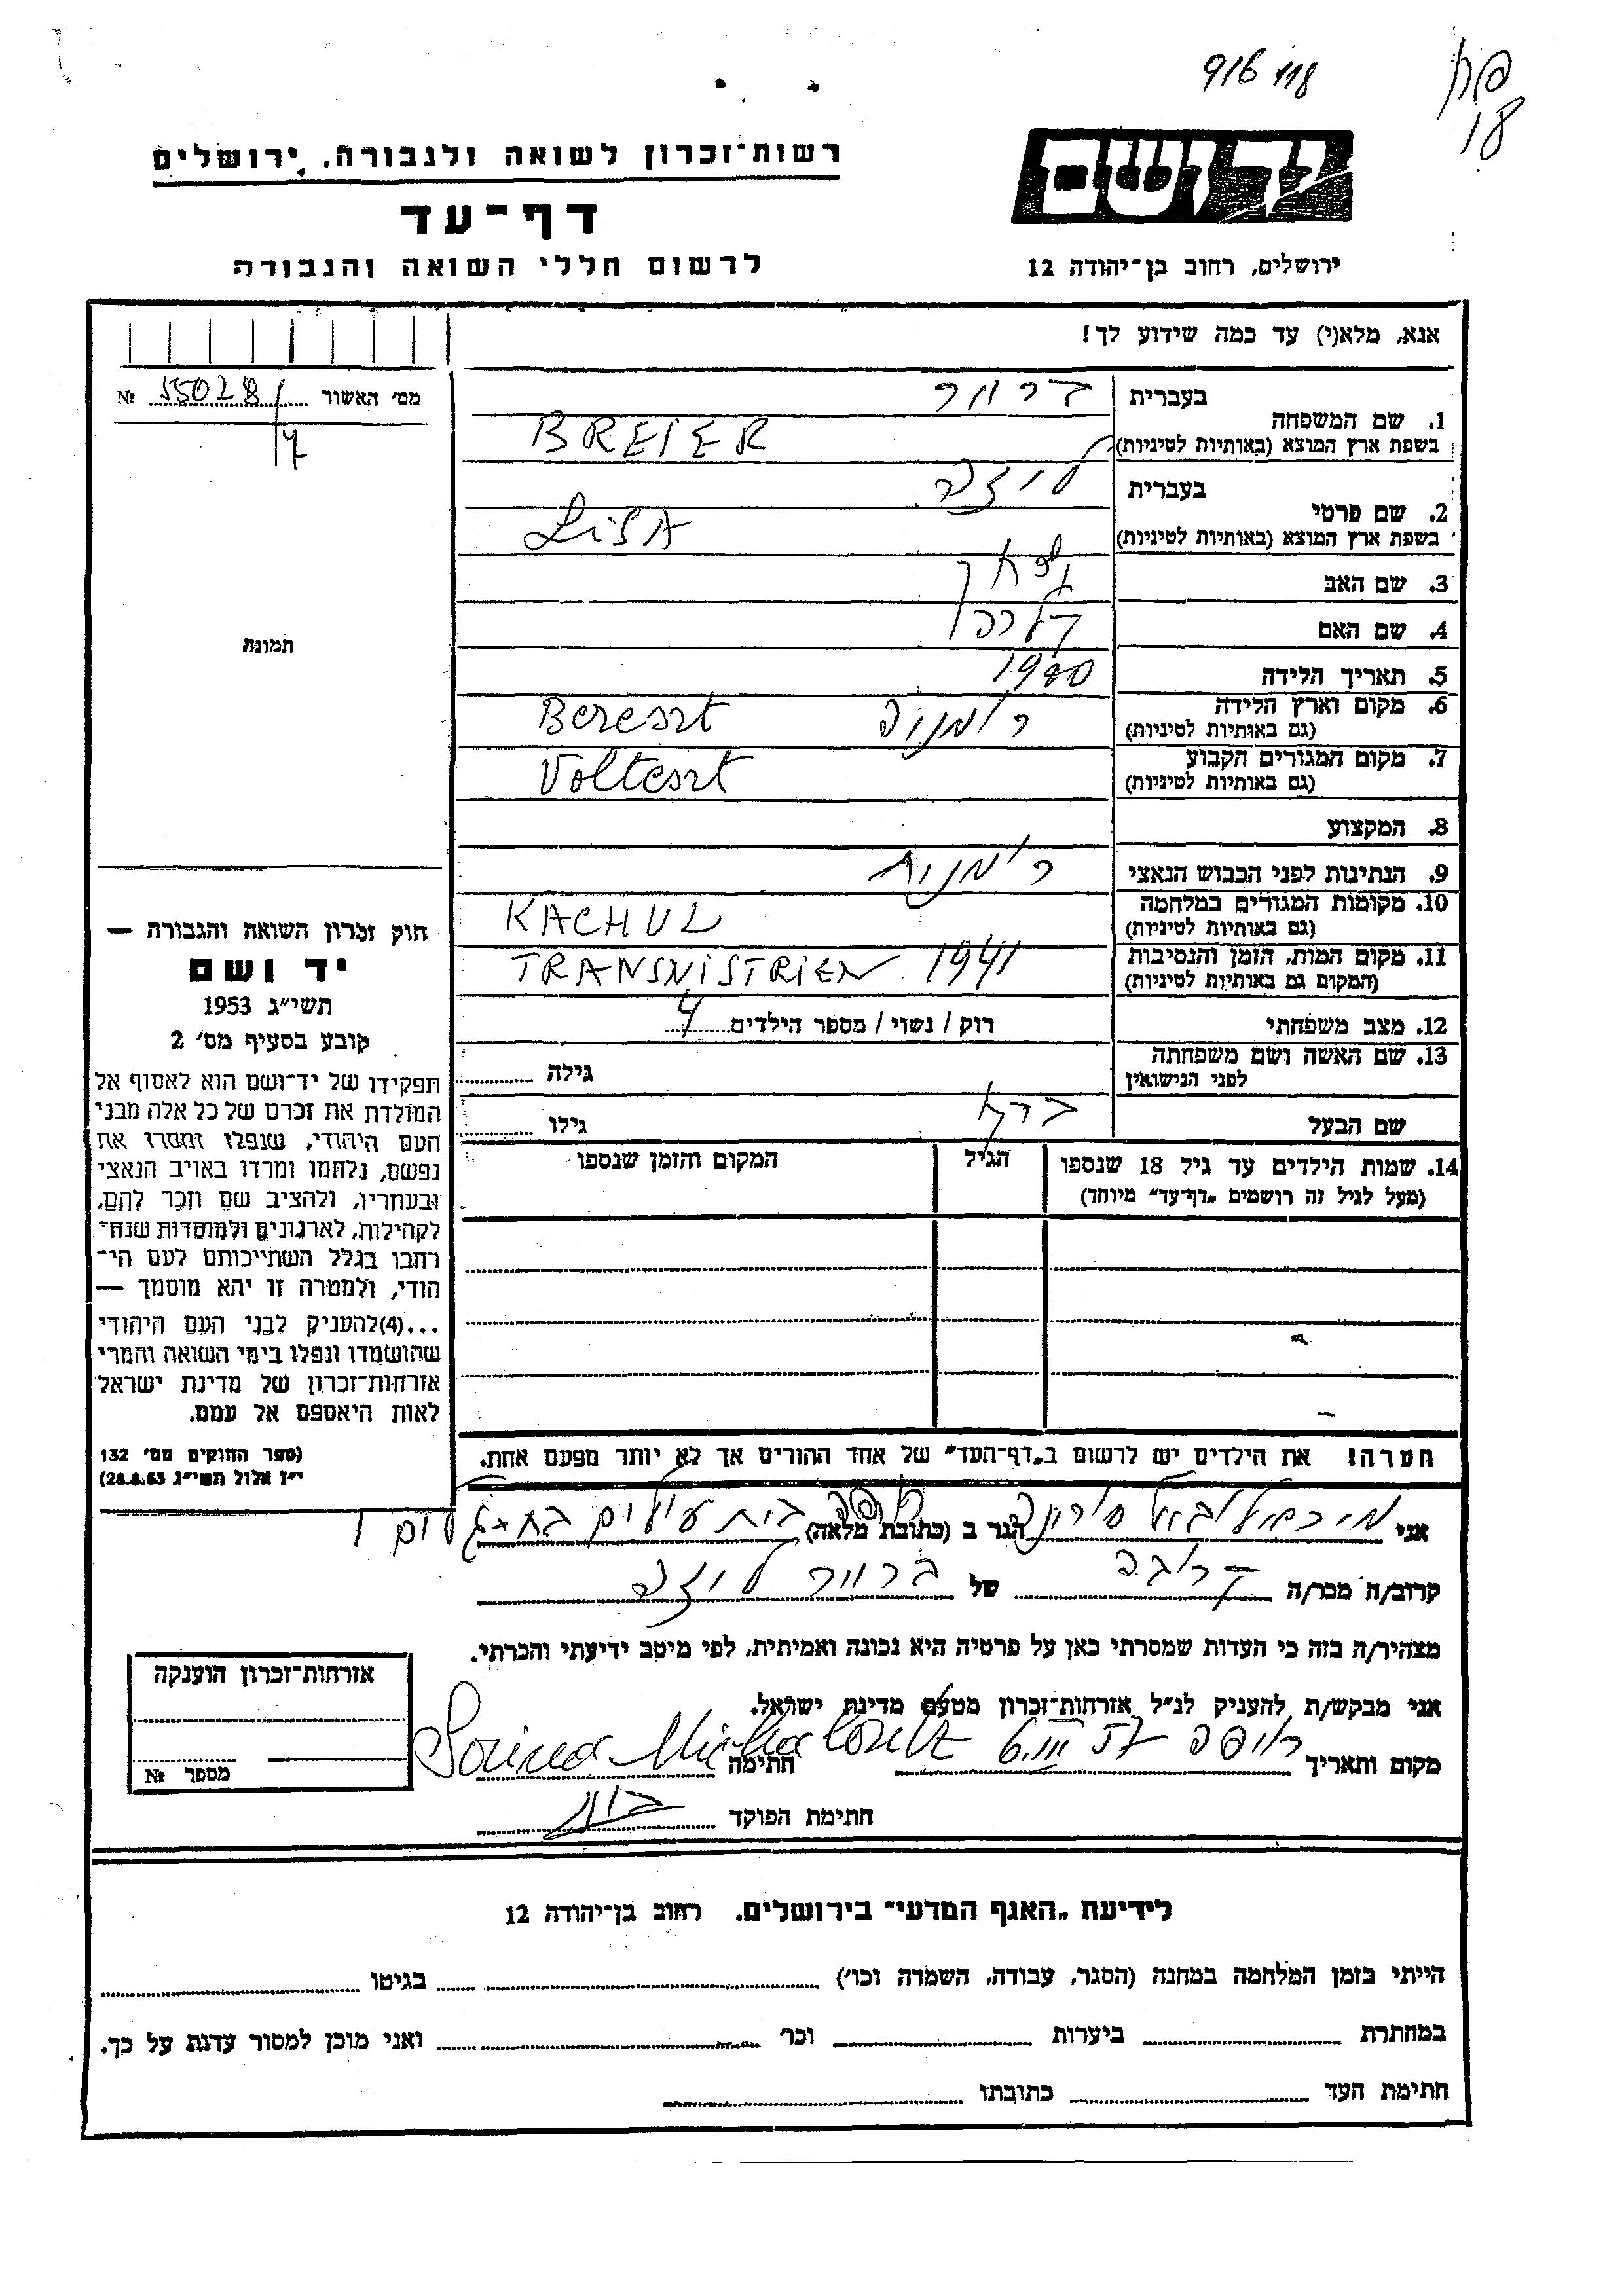 916 118
18
רשות־זכרון לשואה ולגבורה, ירושלים
יד ושם
דף־עד
לרשום חללי השואה והגבורה
ירושלים, רחוב בן־יהודה 12
אנא, מלא(י) עד כמה שידוע לך!
מס׳ האשור 55028 №
4
1. שם המשפחה בעברית ברייר
בשפת ארץ המוצא (באותיות לטיניות) BREIER
2. שם פרטי בעברית ליזה
בשפת ארץ המוצא (באותיות לטיניות) LiSA
3. שם האב
4. שם האם קלרה
5. תאריך הלידה
6. מקום וארץ הלידה רומניה Bereszt
(גם באותיות לטיניות)
7. מקום המגורים הקבוע Volteszt
(גם באותיות לטיניות)
8. המקצוע
9. הנתינות לפני הכבוש הנאצי רומנית
10. מקומות המגורים במלחמה KACHUL
(גם באותיות לטיניות)
11. מקום המות, הזמן והנסיבות TRANSNiSTRiEN 1941
(המקום גם באותיות לטיניות)
12. מצב משפחתי רוק / נשוי / מספר הילדים 4
13. שם האשה ושם משפחתה גילה
לפני הנישואין
שם הבעל גילו
14. שמות הילדים עד גיל 18 שנספו הגיל המקום והזמן שנספו
(מעל לגיל זה רושמים „דף־עד״ מיוחד)
הערה! את הילדים יש לרשום ב„דף־העד״ של אחד ההורים אך לא יותר מפעם אחת.
תמונה
חוק זכרון השואה והגבורה —
יד ושם
תשי״ג 1953
קובע בסעיף מס׳ 2
תפקידו של יד־ושם הוא לאסוף אל
המולדת את זכרם של כל אלה מבני
העם היהודי, שנפלו ומסרו את
נפשם, נלחמו ומרדו באויב הנאצי
ובעוזריו, ולהציב שם וזכר להם,
לקהילות, לארגונים ולמוסדות שנח־
רבו בגלל השתייכותם לעם הי־
הודי, ולמטרה זו יהא מוסמך —
...(4)להעניק לבני העם היהודי
שהושמדו ונפלו בימי השואה והמרי
אזרחות־זכרון של מדינת ישראל
לאות היאספם אל עמם.
(ספר החוקים מס׳ 132
י״ז אלול תשי״ג 28.8.53)
אני הגר ב (כתובת מלאה) בית עולים
קרוב/ה מכר/ה קרובה של ברייר ליזה
מצהיר/ה בזה כי העדות שמסרתי כאן על פרטיה היא נכונה ואמיתית, לפי מיטב ידיעתי והכרתי.
אני מבקש/ת להעניק לנ״ל אזרחות־זכרון מטעם מדינת ישראל.
מקום ותאריך חיפה 6.III.57 חתימה Sorina
חתימת הפוקד
אזרחות־זכרון הוענקה
מספר №
לידיעת „האגף המדעי״ בירושלים, רחוב בן־יהודה 12
הייתי בזמן המלחמה במחנה (הסגר, עבודה, השמדה וכו׳) בגיטו
במחתרת ביערות וכו׳ ואני מוכן למסור עדות על כך.
חתימת העד כתובתו